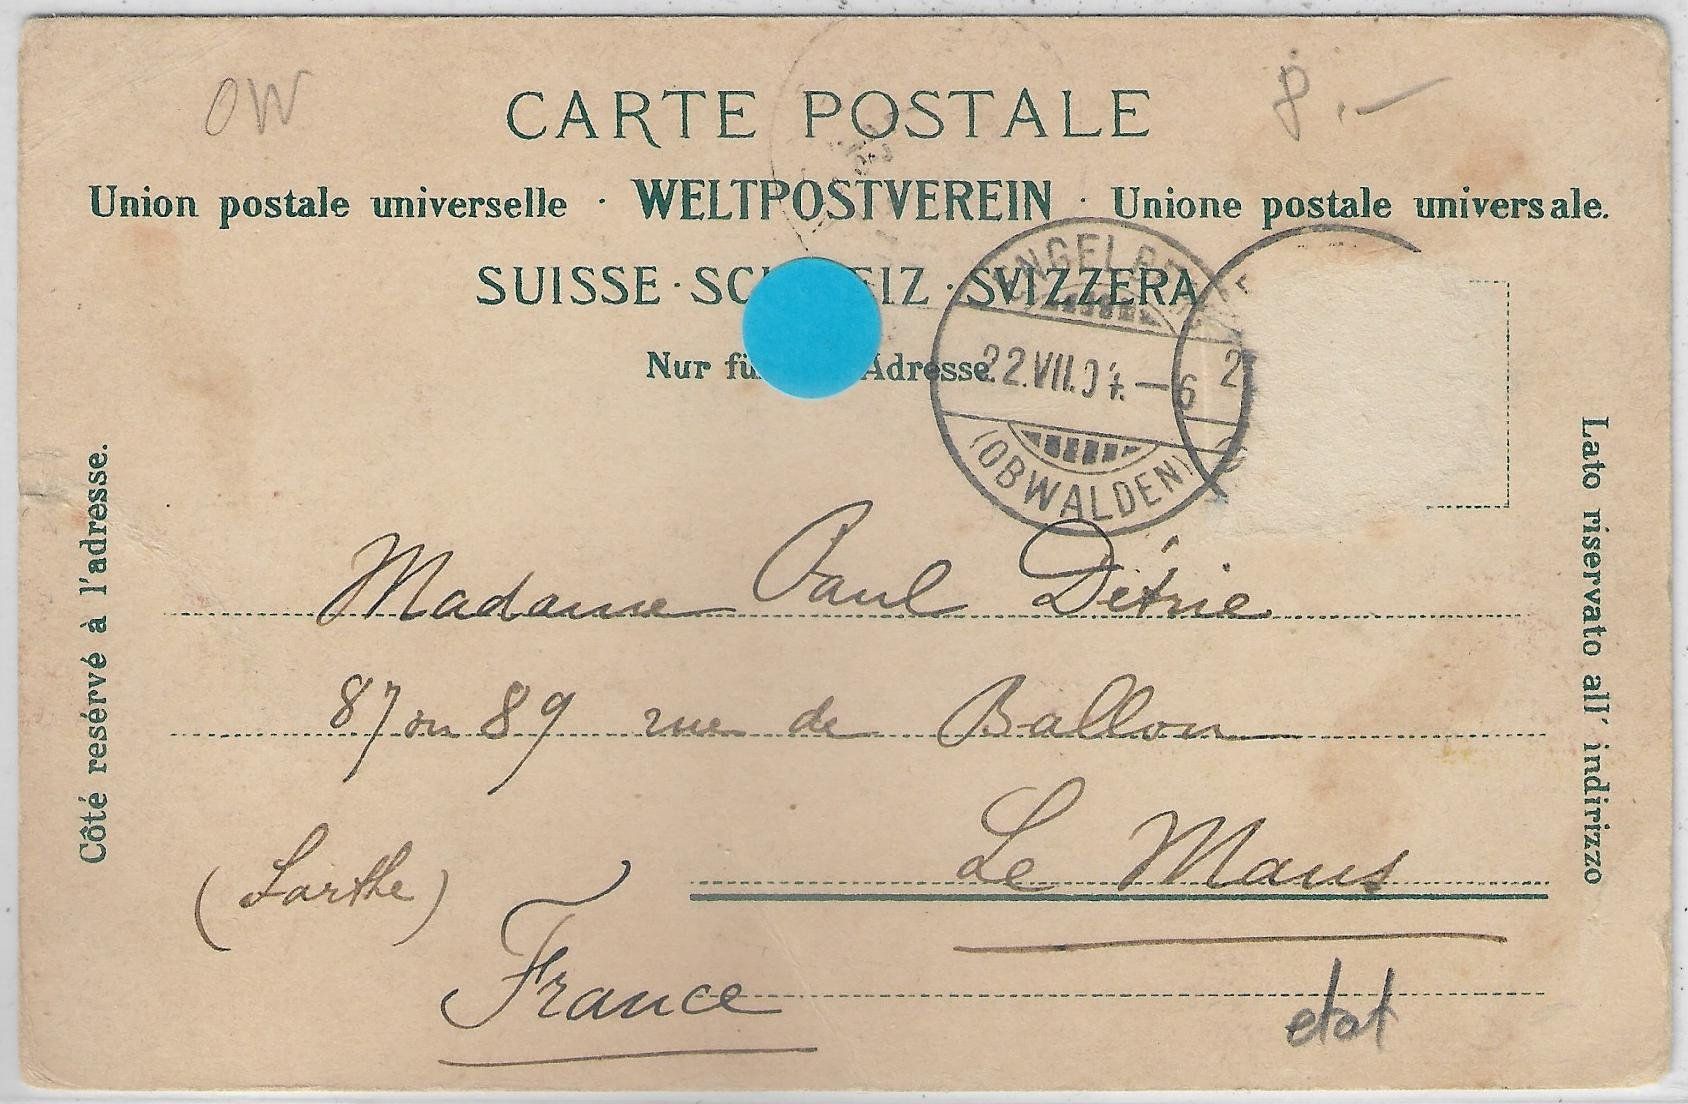 OW
8.—
CARTE POSTALE
Union postale universelle · WELTPOSTVEREIN · Unione postale universale.
SUISSE · SCHWEIZ · SVIZZERA
Nur für Adresse
ENGELBERG
22.VII.04.–6
(OBWALDEN)
2
Côté resérvé à l'adresse.
Lato riservato all' indirizzo
Madame Paul Détrie
87 ou 89 rue de Ballon
Le Mans
(Sarthe)
France
etat